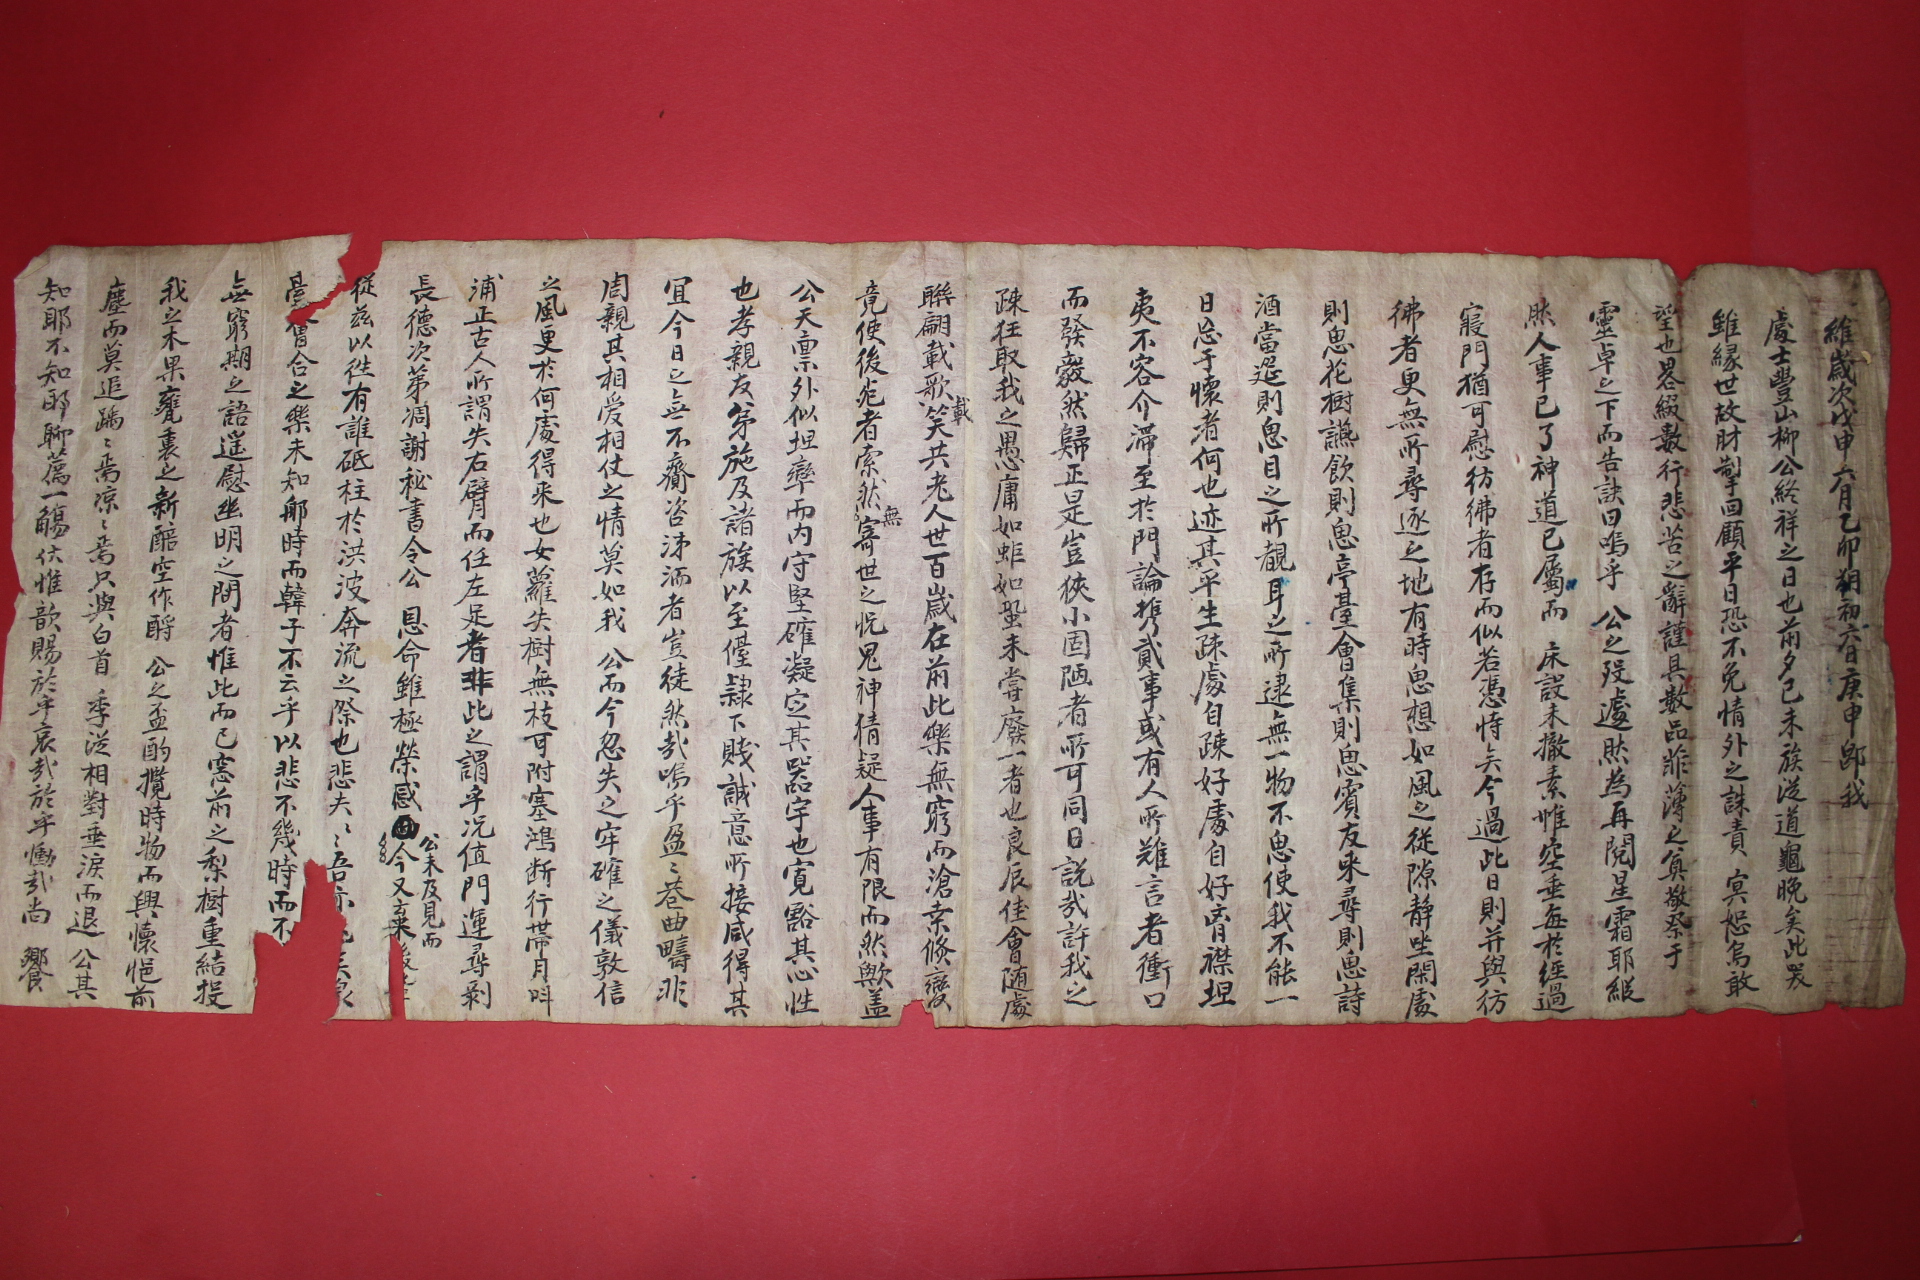 維歲次戊申六月乙卯朔初六日庚申卽我
處士豊山柳公終祥之日也前夕己未族從道龜晚矣此哭
雖緣世故肘掣回顧平日恐不免情外之誅責 冥恕烏敢
望也畧綴數行悲苦之辭謹具數品菲薄之奠敬祭于
靈卓之下而告訣曰嗚乎 公之歿遽然爲再閱星霜耶縱
然人事已了神道已屬而 床設未撤素帷空垂每於經過
寢門猶可慰彷彿者存而似若憑恃矣今過此日則并與彷
彿者更無所尋逐之地有時思想如風之從隙靜坐閑處
則思花樹讌飮則思亭臺會集則思賓友來尋則思詩
酒當筵則思目之所覩耳之所逮無一物不思使我不能一
日忘于懷者何也迹其平生疎處自疎好處自好胷襟坦
夷不容介滯至於門論携貳事或有人所難言者衝口
而發毅然歸正是豈狹小固陋者所可同日說哉許我之
疎狂取我之愚庸如蚷如蛩未嘗廢一者也良辰佳會隨處
聯翩載歌載笑共老人世百歲在前此樂無窮而滄桑倏變
竟使後死者索然無寄世之怳鬼神猜疑人事有限而然歟盖
公天稟外似坦率而內守堅確凝定其器宇也寬豁其心性
也孝親友弟施及諸族以至僮隷下賤誠意所接咸得其
宜今日之無不齎咨涕洒者豈徒然哉嗚乎盈〻巷曲疇非
周親其相愛相仗之情莫如我 公而今忽失之牢確之儀敦信
之風更於何處得來也女蘿失樹無枝可附塞鴻斷行帶月叫
浦正古人所謂失右臂而任左足者非此之謂乎况値門運尋剝
長德次第凋謝秘書令公 恩命雖極榮感 公未及見而今又棄
從玆以徃有誰砥柱於洪波奔流之際也悲夫〻吾亦
臺會合之樂未知郍時而韓子不云乎以悲不幾時而不
無窮期之語遥慰幽明之閒者惟此而已窓前之梨樹重結投
我之木果甕裏之新醅空作酹 公之盃酌攬時物而興懷悒前
塵而莫追踽〻焉凉〻焉只與白首 季從相對垂淚而退 公其
知耶不知耶聊薦一觴伏惟歆賜於乎哀哉於乎慟哉尚 饗